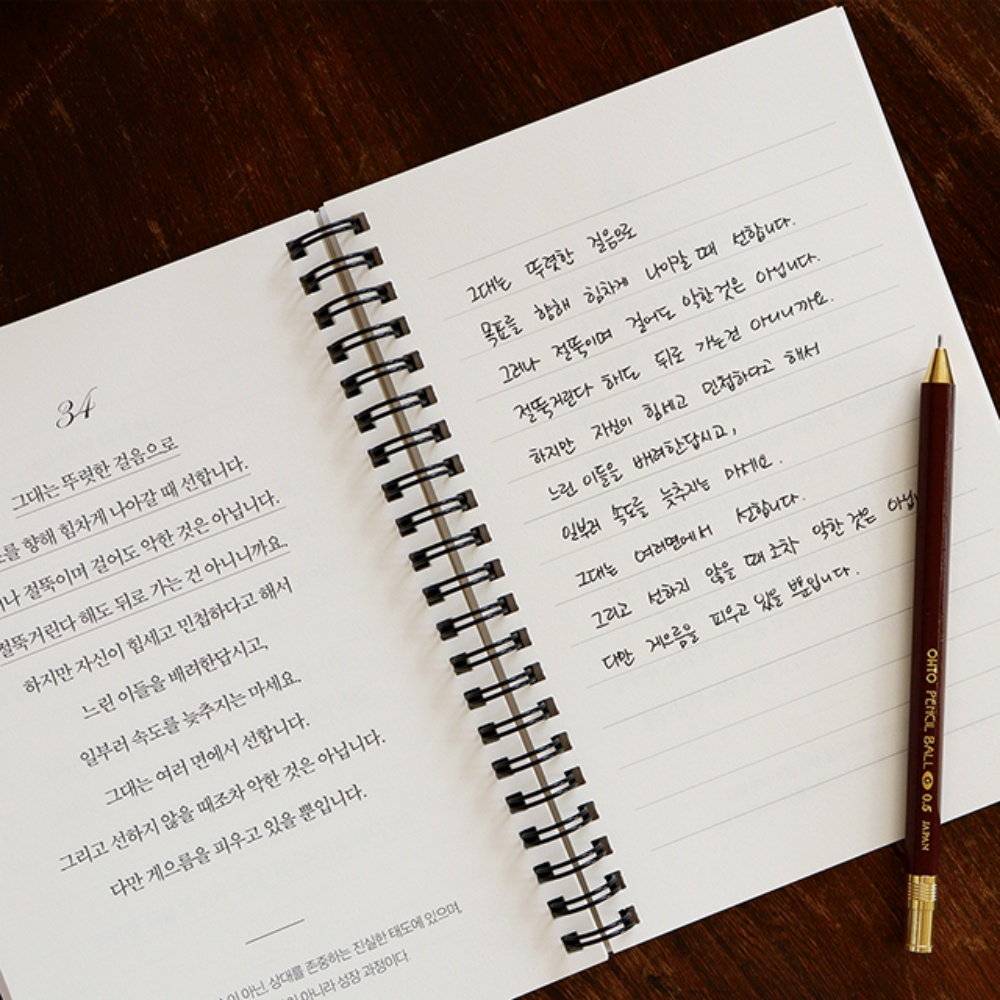 34
그대는 뚜렷한 걸음으로
를 향해 힘차게 나아갈 때 선합니다.
나 절뚝이며 걸어도 악한 것은 아닙니다.
절뚝거린다 해도 뒤로 가는 건 아니니까요.
하지만 자신이 힘세고 민첩하다고 해서
느린 이들을 배려한답시고,
일부러 속도를 늦추지는 마세요.
그대는 여러 면에서 선합니다.
그리고 선하지 않을 때조차 악한 것은 아닙니다.
다만 게으름을 피우고 있을 뿐입니다.
이 아닌, 상대를 존중하는 진실한 태도에 있으며,
아니라 성장 과정이다.
그대는 뚜렷한 걸음으로
목표를 향해 힘차게 나아갈 때 선합니다.
그러나 절뚝이며 걸어도 악한것은 아닙니다.
절뚝거린다 해도 뒤로 가는건 아니니까요.
하지만 자신이 힘세고 민첩하다고 해서
느린 이들을 배려한답시고,
일부러 속도를 늦추지는 마세요.
그대는 여러면에서 선합니다.
그리고 선하지 않을 때조차 악한 것은 아닙
다만 게으름을 피우고 있을 뿐입니다.
OHTO PENCIL BALL 0.5 JAPAN